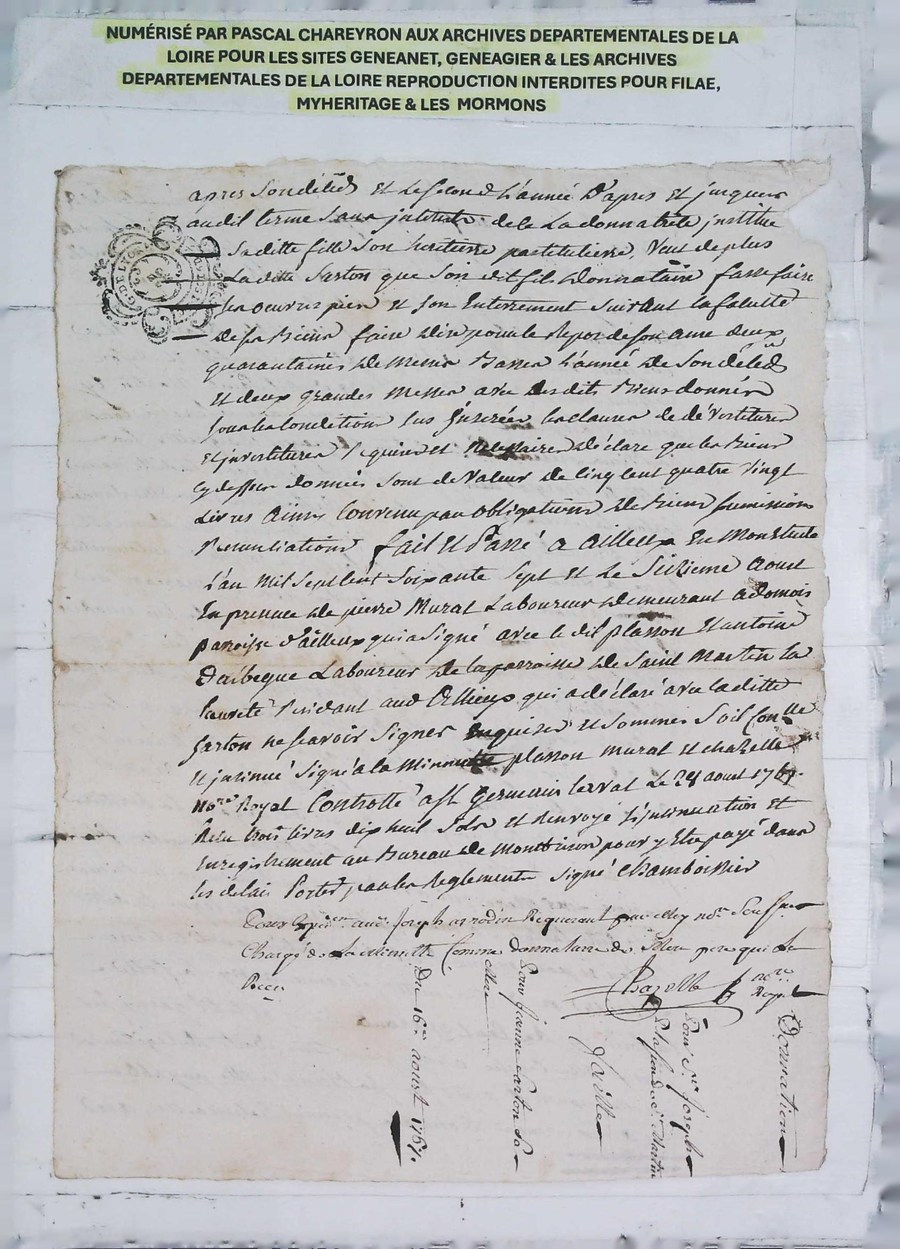 NUMÉRISÉ PAR PASCAL CHAREYRON AUX ARCHIVES DEPARTEMENTALES DE LA
LOIRE POUR LES SITES GENEANET, GENEAGIER & LES ARCHIVES
DEPARTEMENTALES DE LA LOIRE REPRODUCTION INTERDITES POUR FILAE,
MYHERITAGE & LES MORMONS
apres son déceds et le second l'année d'apres et jusques
audit terme sans interest de la donnatrice institue
sa ditte fille son heritiere particuliere, veut de plus
la ditte Farton que son dit fils donnataire fasse faire
les oeuvres pies et son enterrement suivant la faculté
de ses Biens faire dire pour le repos de son ame deux
quarantaines de messes Basses l'année de son déceds
et deux grandes messes desdits Biens donnés
sous les conditions sus inserées les clauses de dévestitures
et investitures requises et necessaires déclare que les Biens
cy dessus donnés sont de valeur de cinq cent quatre vingt
Livres ainsy convenu par obligations de Biens soumissions
renunciations fait et Passé a ailleux en
L'an mil sept cent soixante sept et le seizieme aoust
en presence de pierre Murat Laboureur demeurant a
parroisse d'ailleux qui a signé avec le dit plasson et antoine
Laboureur de la parroisse de Saint Martin la
Sauveté residant aud qui a déclaré avec la ditte
Farton ne scavoir signer enquises et sommés soit
et insinué signé a la Minutte plasson murat et chazelle
nore Royal Controllé a St Germain Lerval le 28 aoust 1767.
Reçu trois livres dix huit sols et renvoyé l'insinuation et
enregistrement au Bureau de Montbrison pour y etre payé dans
les délais portés par les Reglements signé
Pour aud. Joseph Requerant par Moy nore
Chargé de la Minutte Comme donnataire de Mere qui
Chazelle nore Royal
Donnation
Pour Sr Joseph
St Martin
d'aille
Pour jeanne Farton sa
Mere
Du 16me aoust 1767.